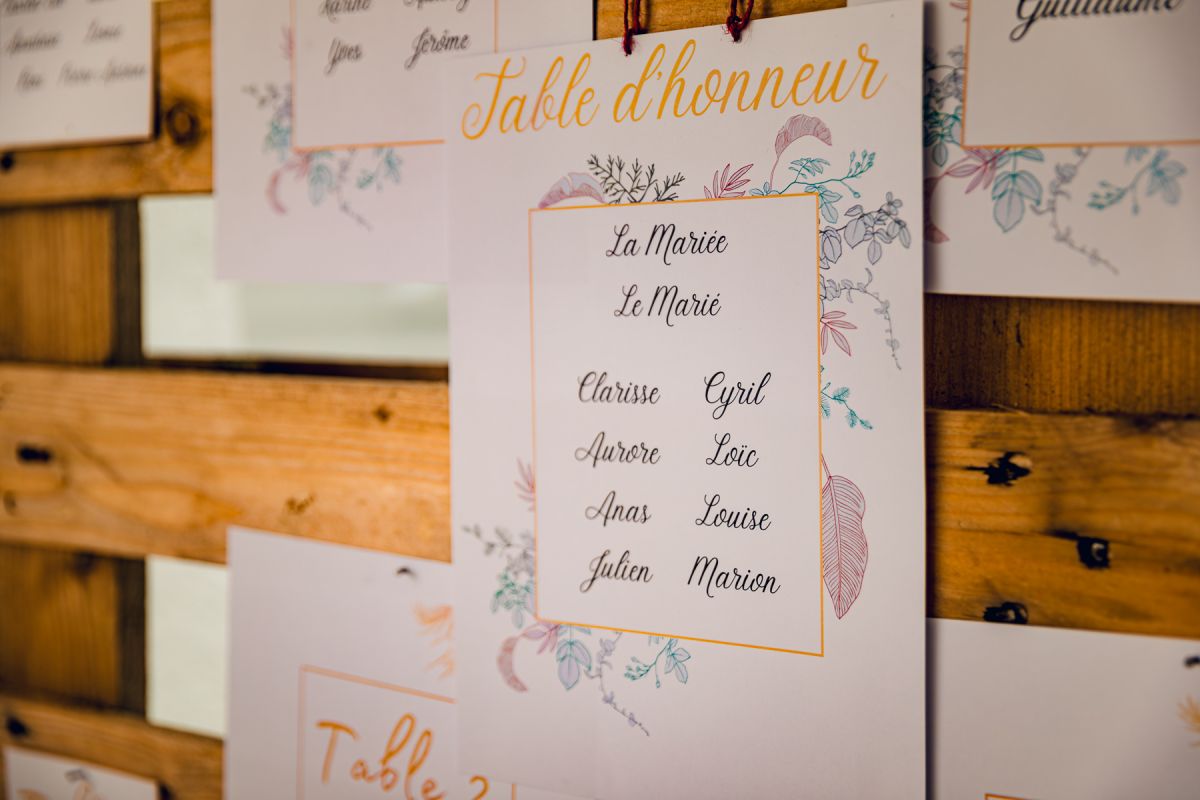 Yves Jérôme
Guillaume
Table d'honneur
La Mariée
Le Marié
Clarisse Cyril
Aurore Loïc
Anas Louise
Julien Marion
Table